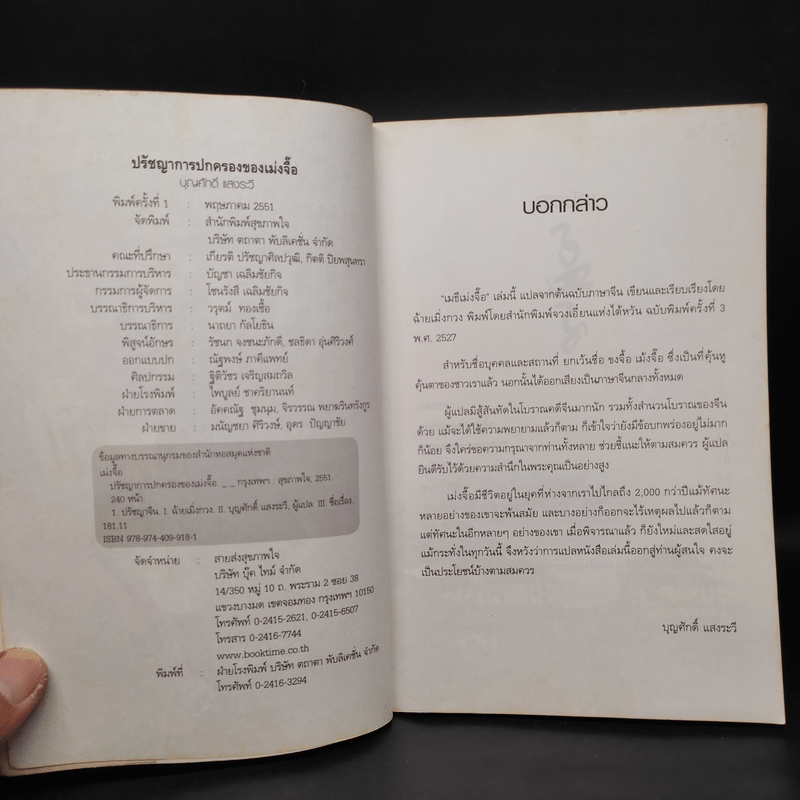 ปรัชญาการปกครองของเม่งจื๊อ
บุญศักดิ์ แสงระวี
พิมพ์ครั้งที่ 1 : พฤษภาคม 2551
จัดพิมพ์ : สำนักพิมพ์สุขภาพใจ
บริษัท ตถาตา พับลิเคชั่น จำกัด
คณะที่ปรึกษา : เกียรติ ปรัชญาศิลปวุฒิ, กิตติ ปิยพสุนทรา
ประธานกรรมการบริหาร : บัญชา เฉลิมชัยกิจ
กรรมการผู้จัดการ : โชนรังสี เฉลิมชัยกิจ
บรรณาธิการบริหาร : วรุตม์ ทองเชื้อ
บรรณาธิการ : นาถยา กัลโยธิน
พิสูจน์อักษร : รัชนก จงชนะภักดี, ชลธิดา อุ่นศิริวงศ์
ออกแบบปก : ณัฐพงษ์ ภาคีแพทย์
ศิลปกรรม : ฐิติวัชร เจริญสมถวิล
ฝ่ายโรงพิมพ์ : ไพบูลย์ ชาครียานนท์
ฝ่ายการตลาด : อัคคณัฐ ชุมนุม, จิรวรรณ พยาฆรินทรังกูร
ฝ่ายขาย : มนัญชยา ศิริวงษ์, อุดร ปัญญาชัย
ข้อมูลทางบรรณานุกรมของสำนักหอสมุดแห่งชาติ
เม่งจื๊อ
ปรัชญาการปกครองของเม่งจื๊อ. _ _ กรุงเทพฯ : สุขภาพใจ, 2551.
240 หน้า.
1. ปรัชญาจีน. I. ฉ้ายเมิ่งกวง. II. บุญศักดิ์ แสงระวี, ผู้แปล. III. ชื่อเรื่อง.
181.11
ISBN 978-974-409-918-1
จัดจำหน่าย : สายส่งสุขภาพใจ
บริษัท บุ๊ค ไทม์ จำกัด
14/350 หมู่ 10 ถ. พระราม 2 ซอย 38
แขวงบางมด เขตจอมทอง กรุงเทพฯ 10150
โทรศัพท์ 0-2415-2621, 0-2415-6507
โทรสาร 0-2416-7744
www.booktime.co.th
พิมพ์ที่ : ฝ่ายโรงพิมพ์ บริษัท ตถาตา พับลิเคชั่น จำกัด
โทรศัพท์ 0-2416-3294
บอกกล่าว
"เมธีเม่งจื๊อ" เล่มนี้ แปลจากต้นฉบับภาษาจีน เขียนและเรียบเรียงโดย
ฉ้ายเมิ่งกวง พิมพ์โดยสำนักพิมพ์จวงเอี๋ยนแห่งไต้หวัน ฉบับพิมพ์ครั้งที่ 3
พ.ศ. 2527
สำหรับชื่อบุคคลและสถานที่ ยกเว้นชื่อ ขงจื๊อ เม้งจื๊อ ซึ่งเป็นที่คุ้นหู
คุ้นตาของชาวเราแล้ว นอกนั้นได้ออกเสียงเป็นภาษาจีนกลางทั้งหมด
ผู้แปลมิสู้สันทัดในโบราณคดีจีนมากนัก รวมทั้งสำนวนโบราณของจีน
ด้วย แม้จะได้ใช้ความพยายามแล้วก็ตาม ก็เข้าใจว่ายังมีข้อบกพร่องอยู่ไม่มาก
ก็น้อย จึงใคร่ขอความกรุณาจากท่านทั้งหลาย ช่วยชี้แนะให้ตามสมควร ผู้แปล
ยินดีรับไว้ด้วยความสำนึกในพระคุณเป็นอย่างสูง
เม่งจื๊อมีชีวิตอยู่ในยุคที่ห่างจากเราไปไกลถึง 2,000 กว่าปีแม้ทัศนะ
หลายอย่างของเขาจะพ้นสมัย และบางอย่างก็ออกจะไร้เหตุผลไปแล้วก็ตาม
แต่ทัศนะในอีกหลายๆ อย่างของเขา เมื่อพิจารณาแล้ว ก็ยังใหม่และสดใสอยู่
แม้กระทั่งในทุกวันนี้ จึงหวังว่าการแปลหนังสือเล่มนี้ออกสู่ท่านผู้สนใจ คงจะ
เป็นประโยชน์บ้างตามสมควร
บุญศักดิ์ แสงระวี